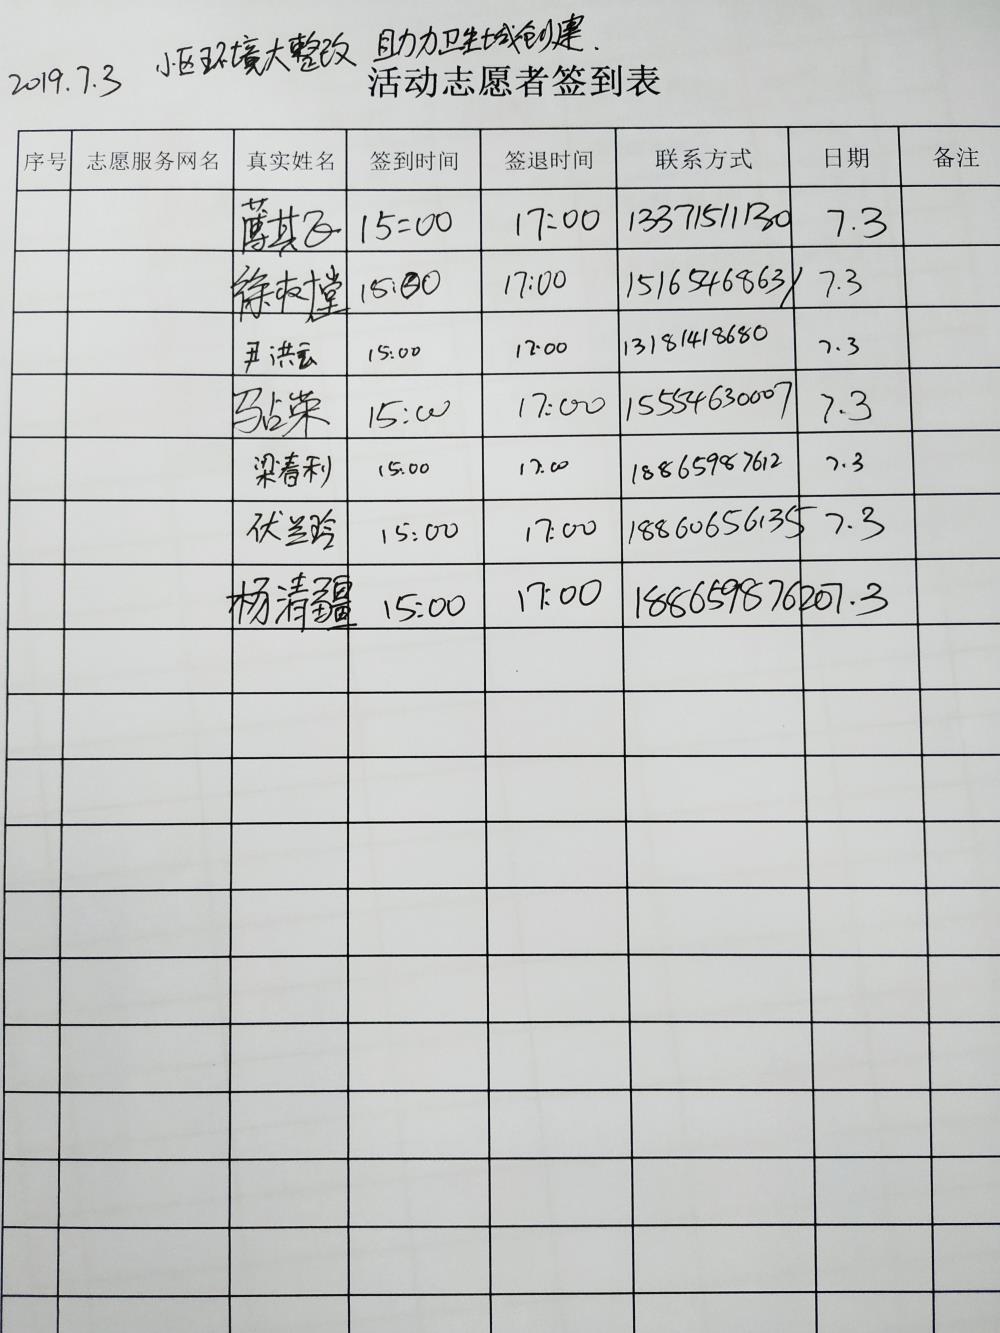 小区环境大整改 助力卫生城创建.
2019.7.3
活动志愿者签到表
序号 志愿服务网名 真实姓名 签到时间 签退时间 联系方式 日期 备注
薄其飞 15:00 17:00 13371511130 7.3
徐树堂 15:00 17:00 15165468631 7.3
尹洪云 15:00 17:00 13181418680 7.3
马占荣 15:00 17:00 15554630007 7.3
梁春利 15:00 17:00 18865987612 7.3
伏兰玲 15:00 17:00 18860656135 7.3
杨清疆 15:00 17:00 18865987620 7.3